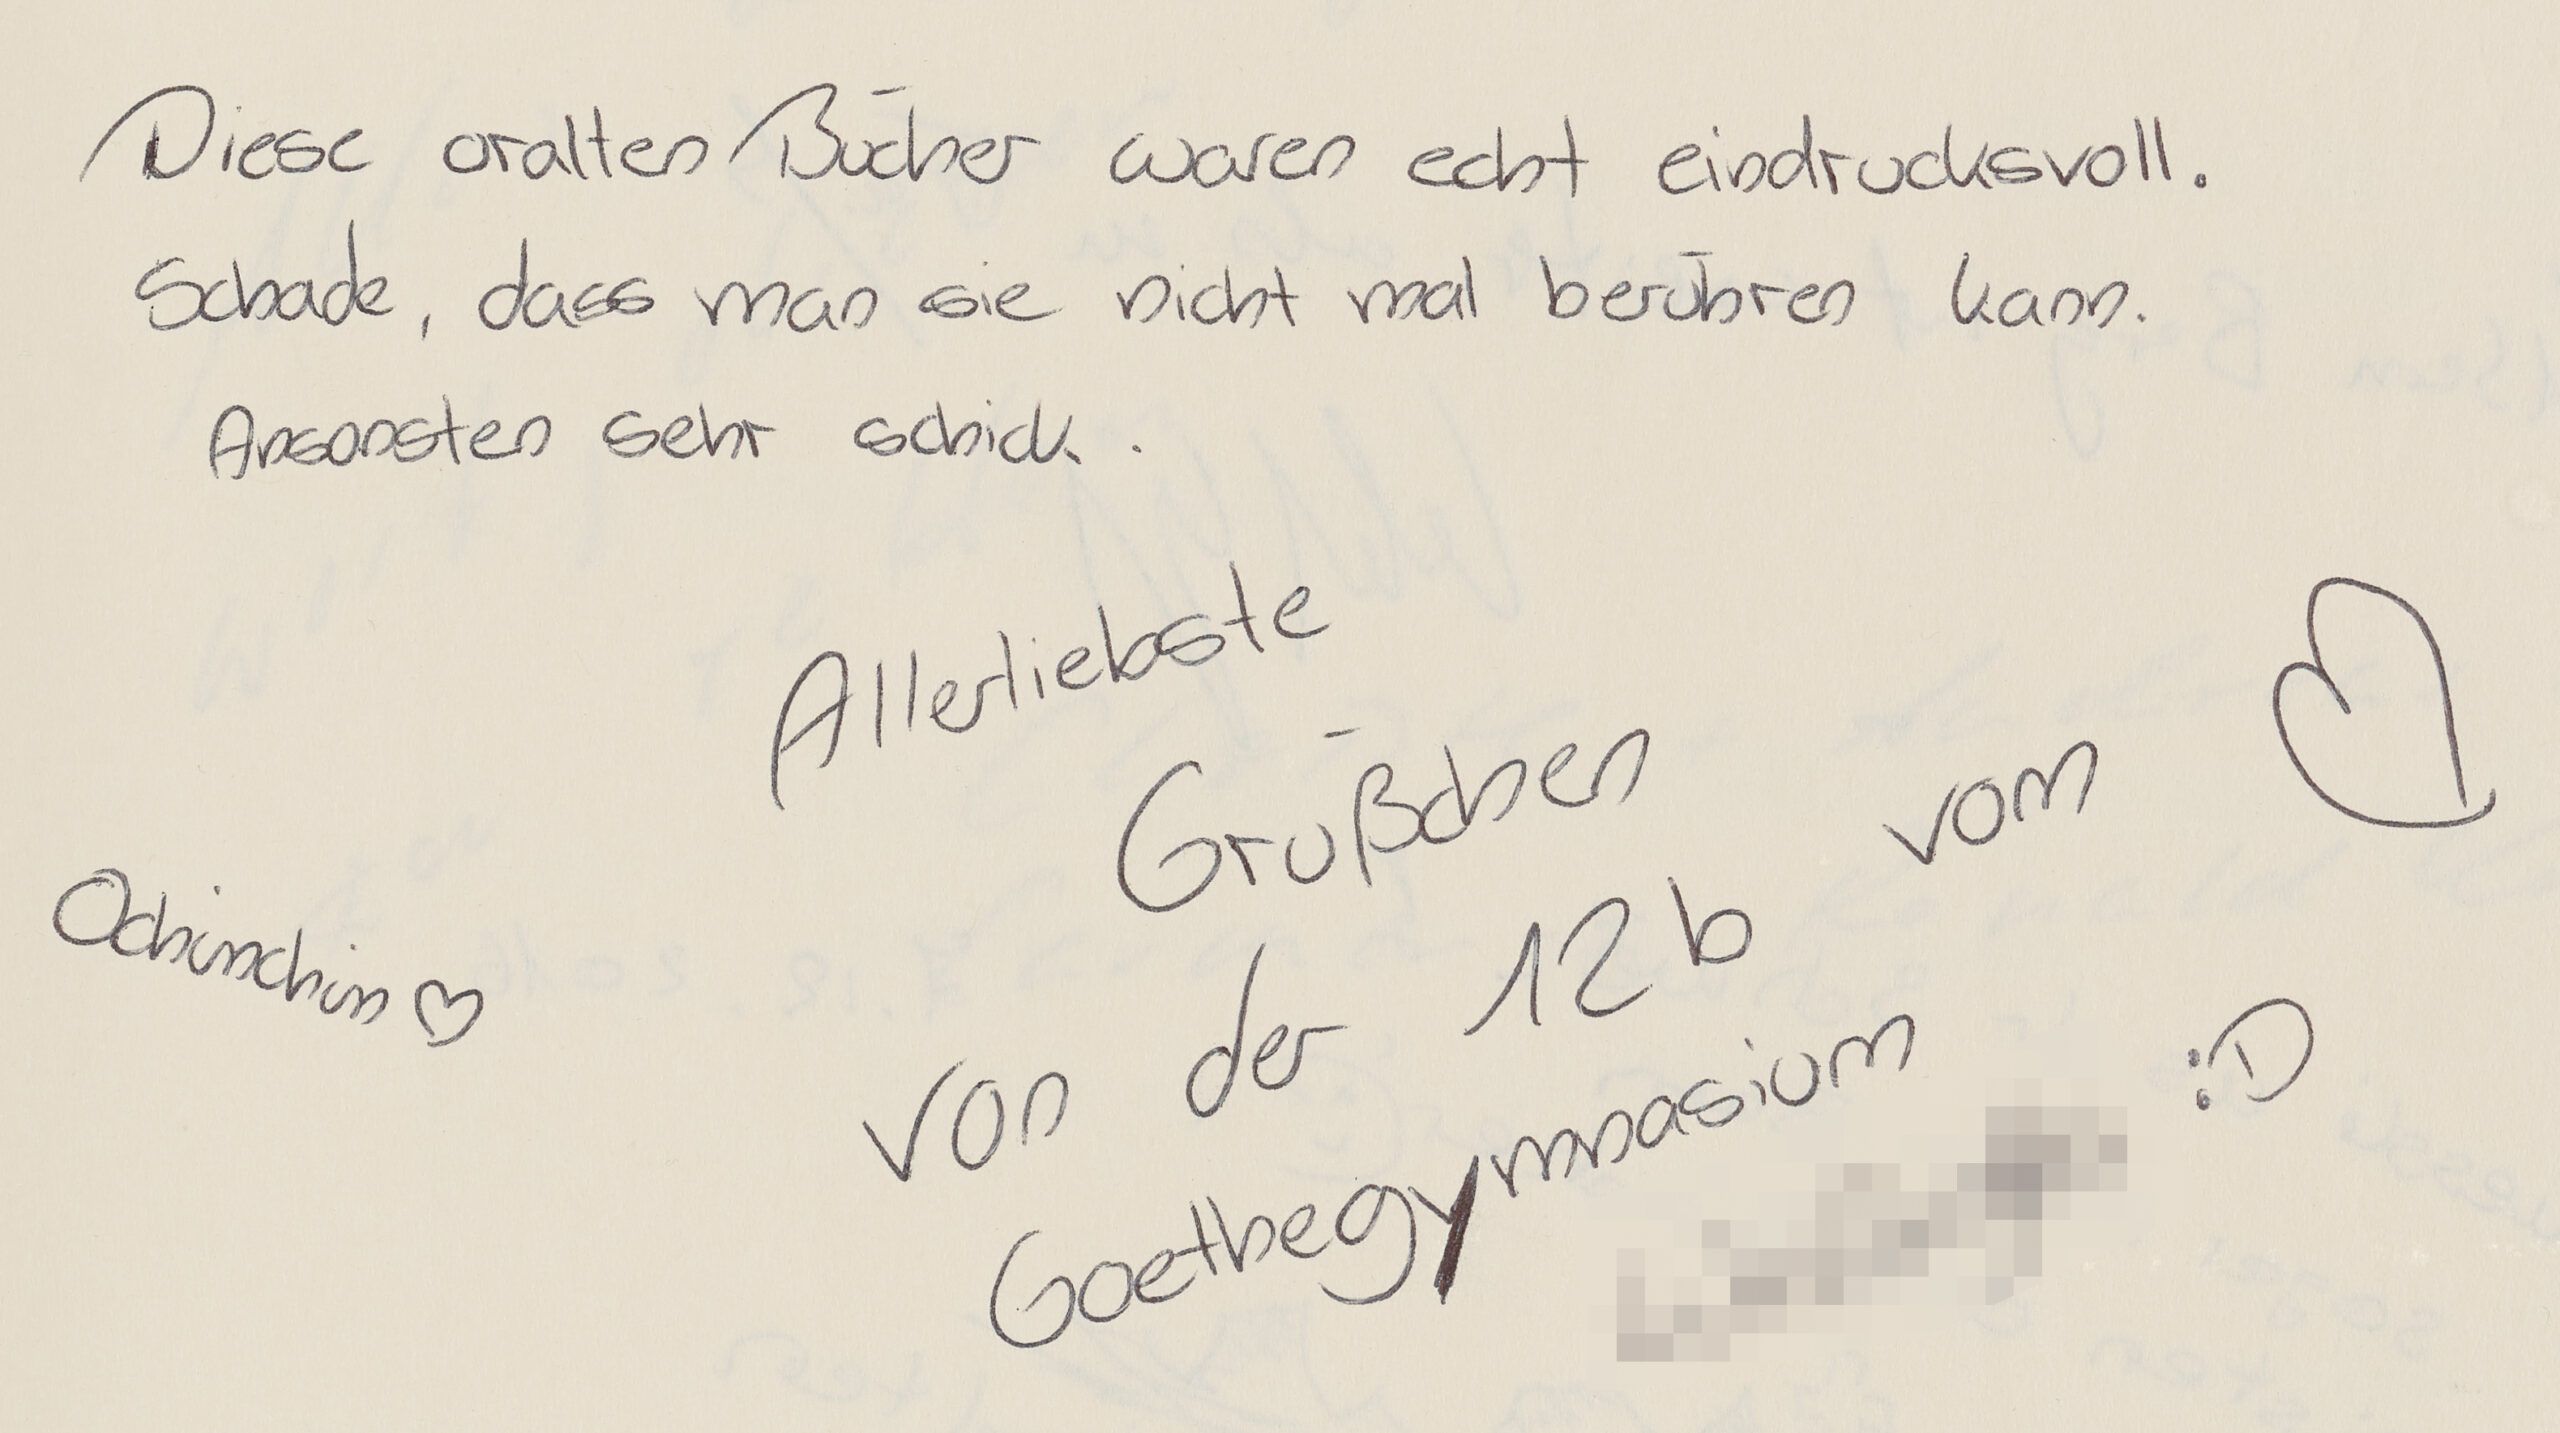 Diese uralten Bücher waren echt eindrucksvoll.
Schade, dass man sie nicht mal berühren kann.
Ansonsten sehr schick.
Allerliebste
Grüßchen
von der 12b vom
Goethegymnasium :D
Ochinchin ♡